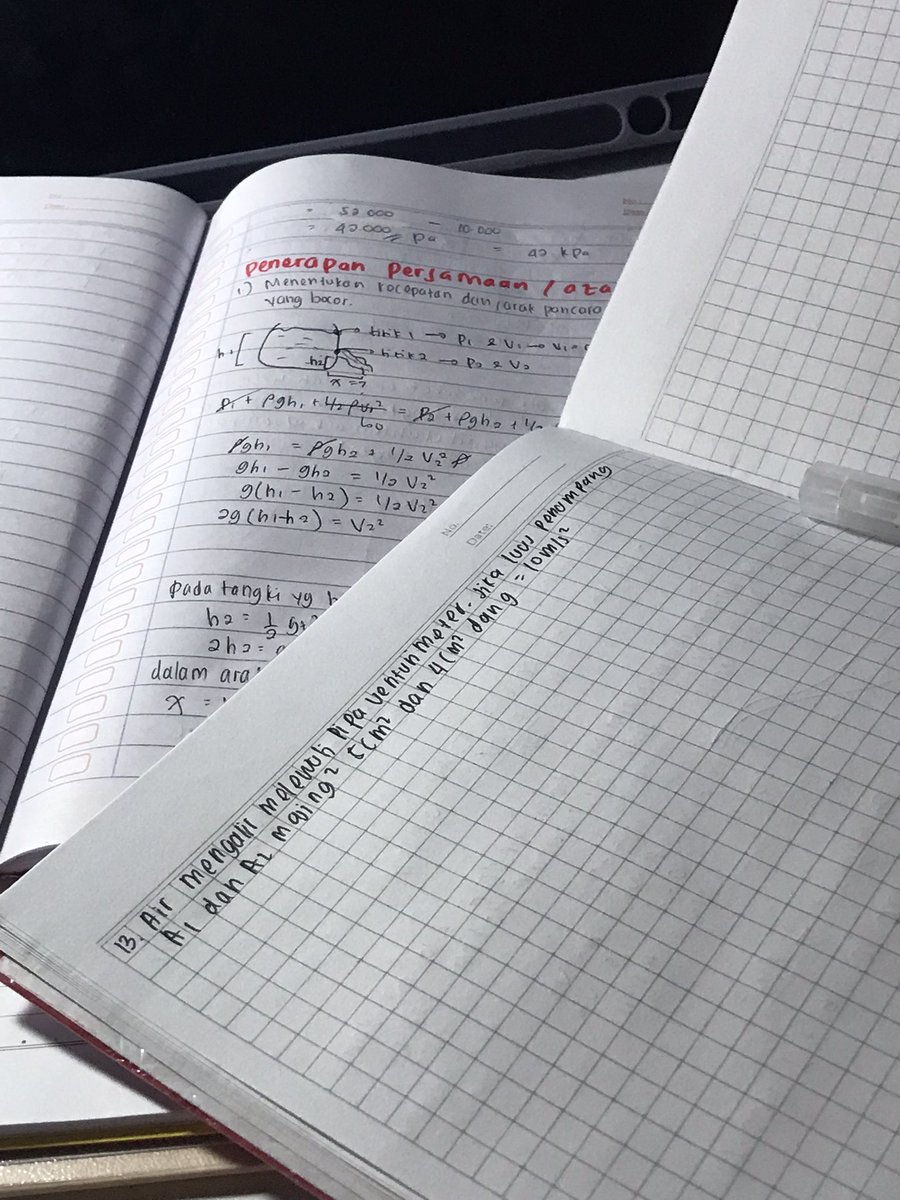 52.000 - 10 000
= 42.000 Pa = 42 kPa
Penerapan Persamaan / aza
1.) Menentukan kecepatan dan jarak pancara
yang bocor.
titik 1 → P1 & V1 → V1 =
h1
titik 2 → P2 & V2
h2
x = ?
P1 + ρgh1 + 1/2 ρv1² = P2 + ρgh2 + 1/2
ρgh1 = ρgh2 + 1/2 V2² ρ
gh1 - gh2 = 1/2 V2²
g(h1 - h2) = 1/2 V2²
2g(h1-h2) = V2²
pada tangki yg
h2 = 1/2 gt²
2h2 =
dalam ara
x =
No.
Date:
13. Air mengalir melewati pipa venturimeter. Jika luas penampang
A1 dan A2 masing² 5cm² dan 4cm² dan g = 10m/s²